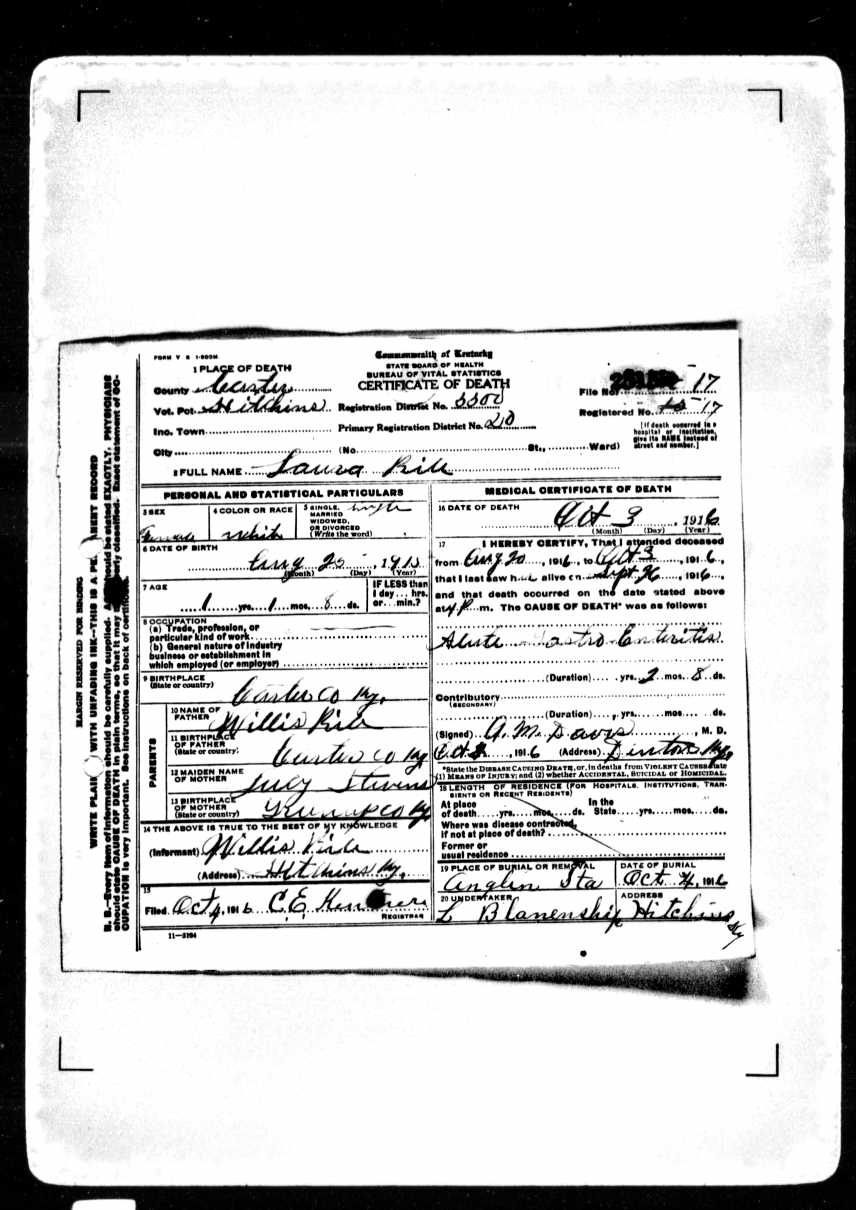 FORM V S 1-500M
Commonwealth of Kentucky
STATE BOARD OF HEALTH
BUREAU OF VITAL STATISTICS
CERTIFICATE OF DEATH
1 PLACE OF DEATH
County Carter
Vot. Pct. Hitchins
Inc. Town
City
Registration District No.
Primary Registration District No. 210
(No. St., Ward)
File No. 17
Registered No. 17
[If death occurred in a
hospital or institution,
give its NAME instead of
street and number.]
2 FULL NAME Laura
PERSONAL AND STATISTICAL PARTICULARS
3 SEX Female
4 COLOR OR RACE White
5 SINGLE, MARRIED WIDOWED, OR DIVORCED (Write the word) Single
6 DATE OF BIRTH
Aug 25, 1915
(Month) (Day) (Year)
7 AGE
1 yrs. 1 mos. 8 ds.
IF LESS than
1 day hrs.
or min.?
8 OCCUPATION
(a) Trade, profession, or
particular kind of work
(b) General nature of industry
business or establishment in
which employed (or employer)
9 BIRTHPLACE
(State or country)
Carter Co Ky.
PARENTS
10 NAME OF FATHER Willis
11 BIRTHPLACE OF FATHER (State or country) Carter Co Ky
12 MAIDEN NAME OF MOTHER Lucy Stevens
13 BIRTHPLACE OF MOTHER (State or country) Greenup Co Ky
14 THE ABOVE IS TRUE TO THE BEST OF MY KNOWLEDGE
(Informant) Willis
(Address) Hitchins Ky.
15
Filed Oct 4, 1916 C.E.
REGISTRAR
11-5194
MEDICAL CERTIFICATE OF DEATH
16 DATE OF DEATH
Oct 3, 1916
(Month) (Day) (Year)
17 I HEREBY CERTIFY, That I attended deceased
from Aug 20, 1916, to Oct 3, 1916,
that I last saw h alive on Sept 26, 1916,
and that death occurred on the date stated above
at 4 P. m. The CAUSE OF DEATH* was as follows:
Acute Gastro Enteritis
(Duration) yrs. 2 mos. 8 ds.
Contributory
(SECONDARY)
(Duration) yrs. mos. ds.
(Signed) A. M. Davis, M. D.
, 1916 (Address) Denton Ky.
*State the DISEASE CAUSING DEATH, or, in deaths from VIOLENT CAUSES state
(1) MEANS OF INJURY; and (2) whether ACCIDENTAL, SUICIDAL or HOMICIDAL.
18 LENGTH OF RESIDENCE (FOR HOSPITALS, INSTITUTIONS, TRAN-
SIENTS OR RECENT RESIDENTS)
At place In the
of death yrs. mos. ds. State yrs. mos. ds.
Where was disease contracted,
if not at place of death?
Former or
usual residence
19 PLACE OF BURIAL OR REMOVAL
Anglin Sta
DATE OF BURIAL
Oct 4, 1916
20 UNDERTAKER
L Blanenship
ADDRESS
Hitchins Ky
MARGIN RESERVED FOR BINDING